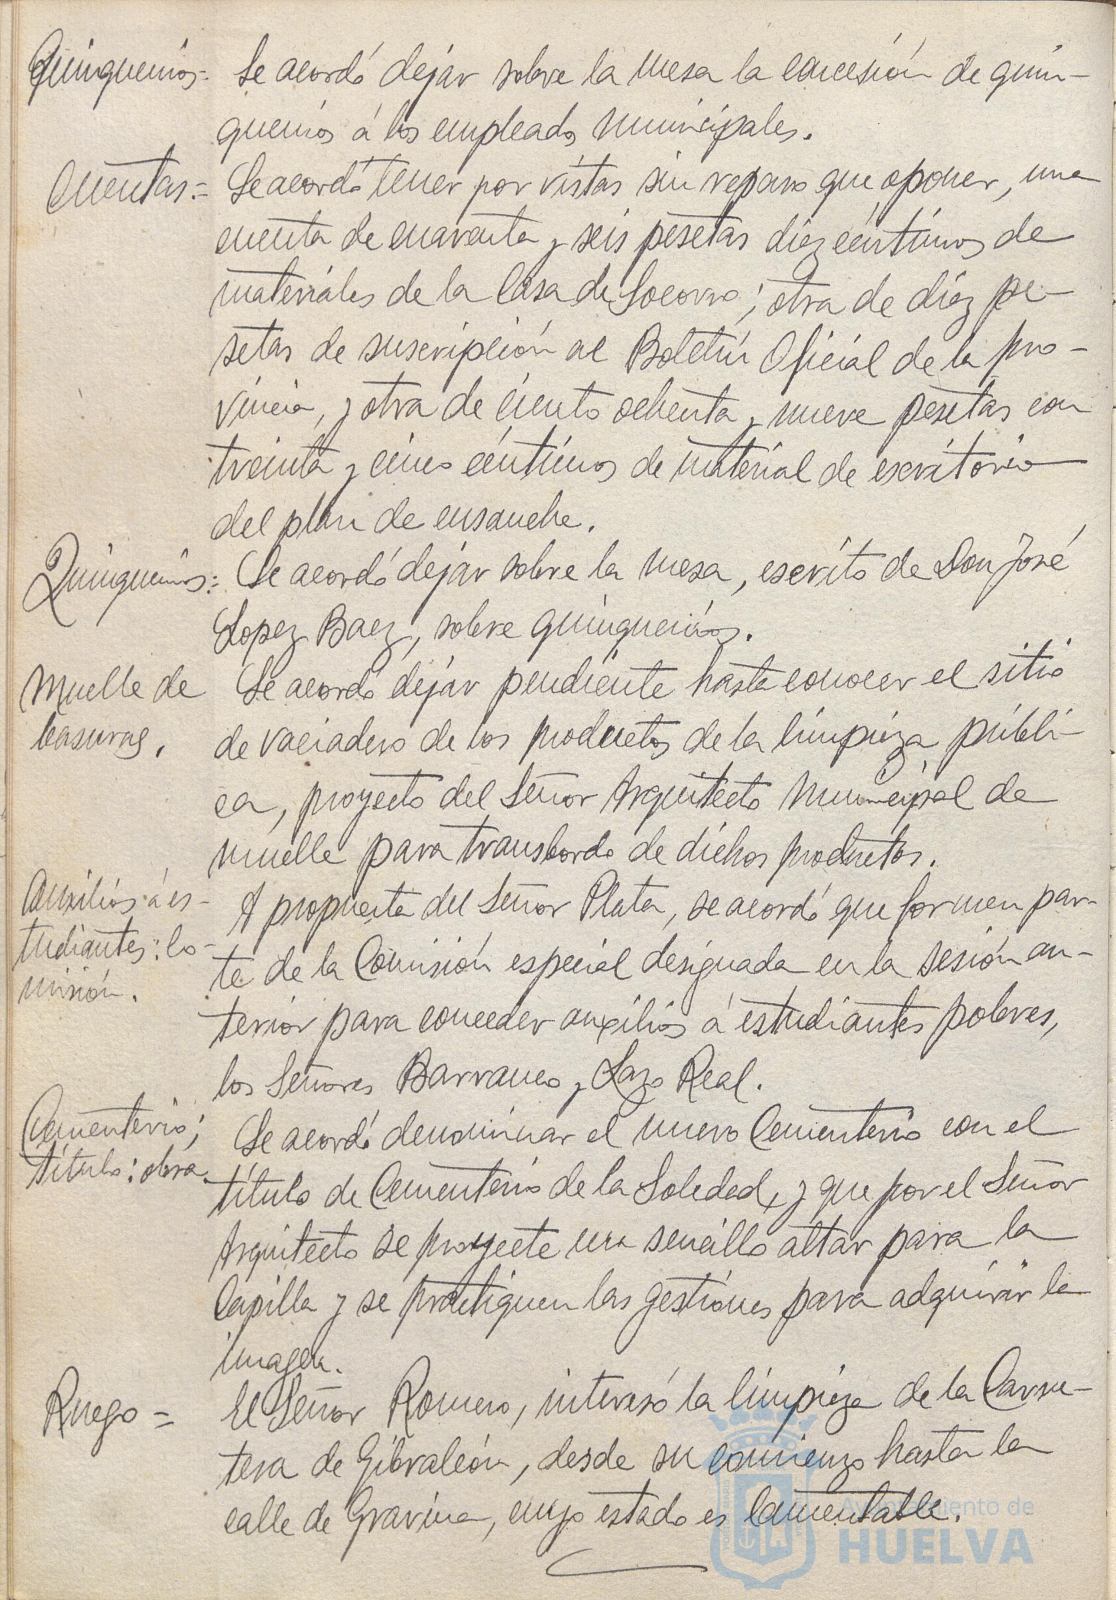 Quinquenios= Se acordó dejar sobre la mesa la concesión de quin-
quenios á los empleados municipales.
Cuentas= Se acordó tener por vistas sin reparo que oponer, una
cuenta de cuarenta y seis pesetas diez céntimos de
materiales de la Casa de Socorro; otra de diez pe-
setas de suscripción al Boletín Oficial de la pro-
vincia, y otra de ciento ochenta y nueve pesetas con
treinta y cinco céntimos de material de escritorio
del plan de ensanche.
Quinquenios= Se acordó dejar sobre la mesa, escrito de Don José
Lopez Baez, sobre quinquenios.
Muelle de Se acordó dejar pendiente hasta conocer el sitio
basuras. de vaciadero de los productos de la limpieza públi-
ca, proyecto del Señor Arquitecto Municipal de
muelle para transbordo de dichos productos.
Auxilios á es- A propuesta del Señor Plata, se acordó que formen par-
tudiantes: Co- te de la Comisión especial designada en la sesión an-
misión. terior para conceder auxilios á estudiantes pobres,
los Señores Barranco y Lazo Real.
Cementerio; Se acordó denominar el nuevo Cementerio con el
título: obra. título de Cementerio de la Soledad, y que por el Señor
Arquitecto se proyecte un sencillo altar para la
Capilla y se practiquen las gestiones para adquirir la
imagen.
Ruego= El Señor Romero, interesó la limpieza de la Carre-
tera de Gibraleón, desde su comienzo hasta la
calle de Gravina, cuyo estado es lamentable.
Ayuntamiento de
HUELVA